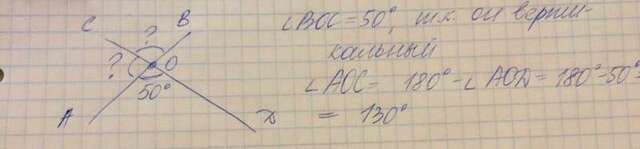 C
B
?
?
O
50°
A
D
∠BOC = 50°, т.к. он верти-
кальный
∠AOC = 180° - ∠AOD = 180° - 50° =
= 130°